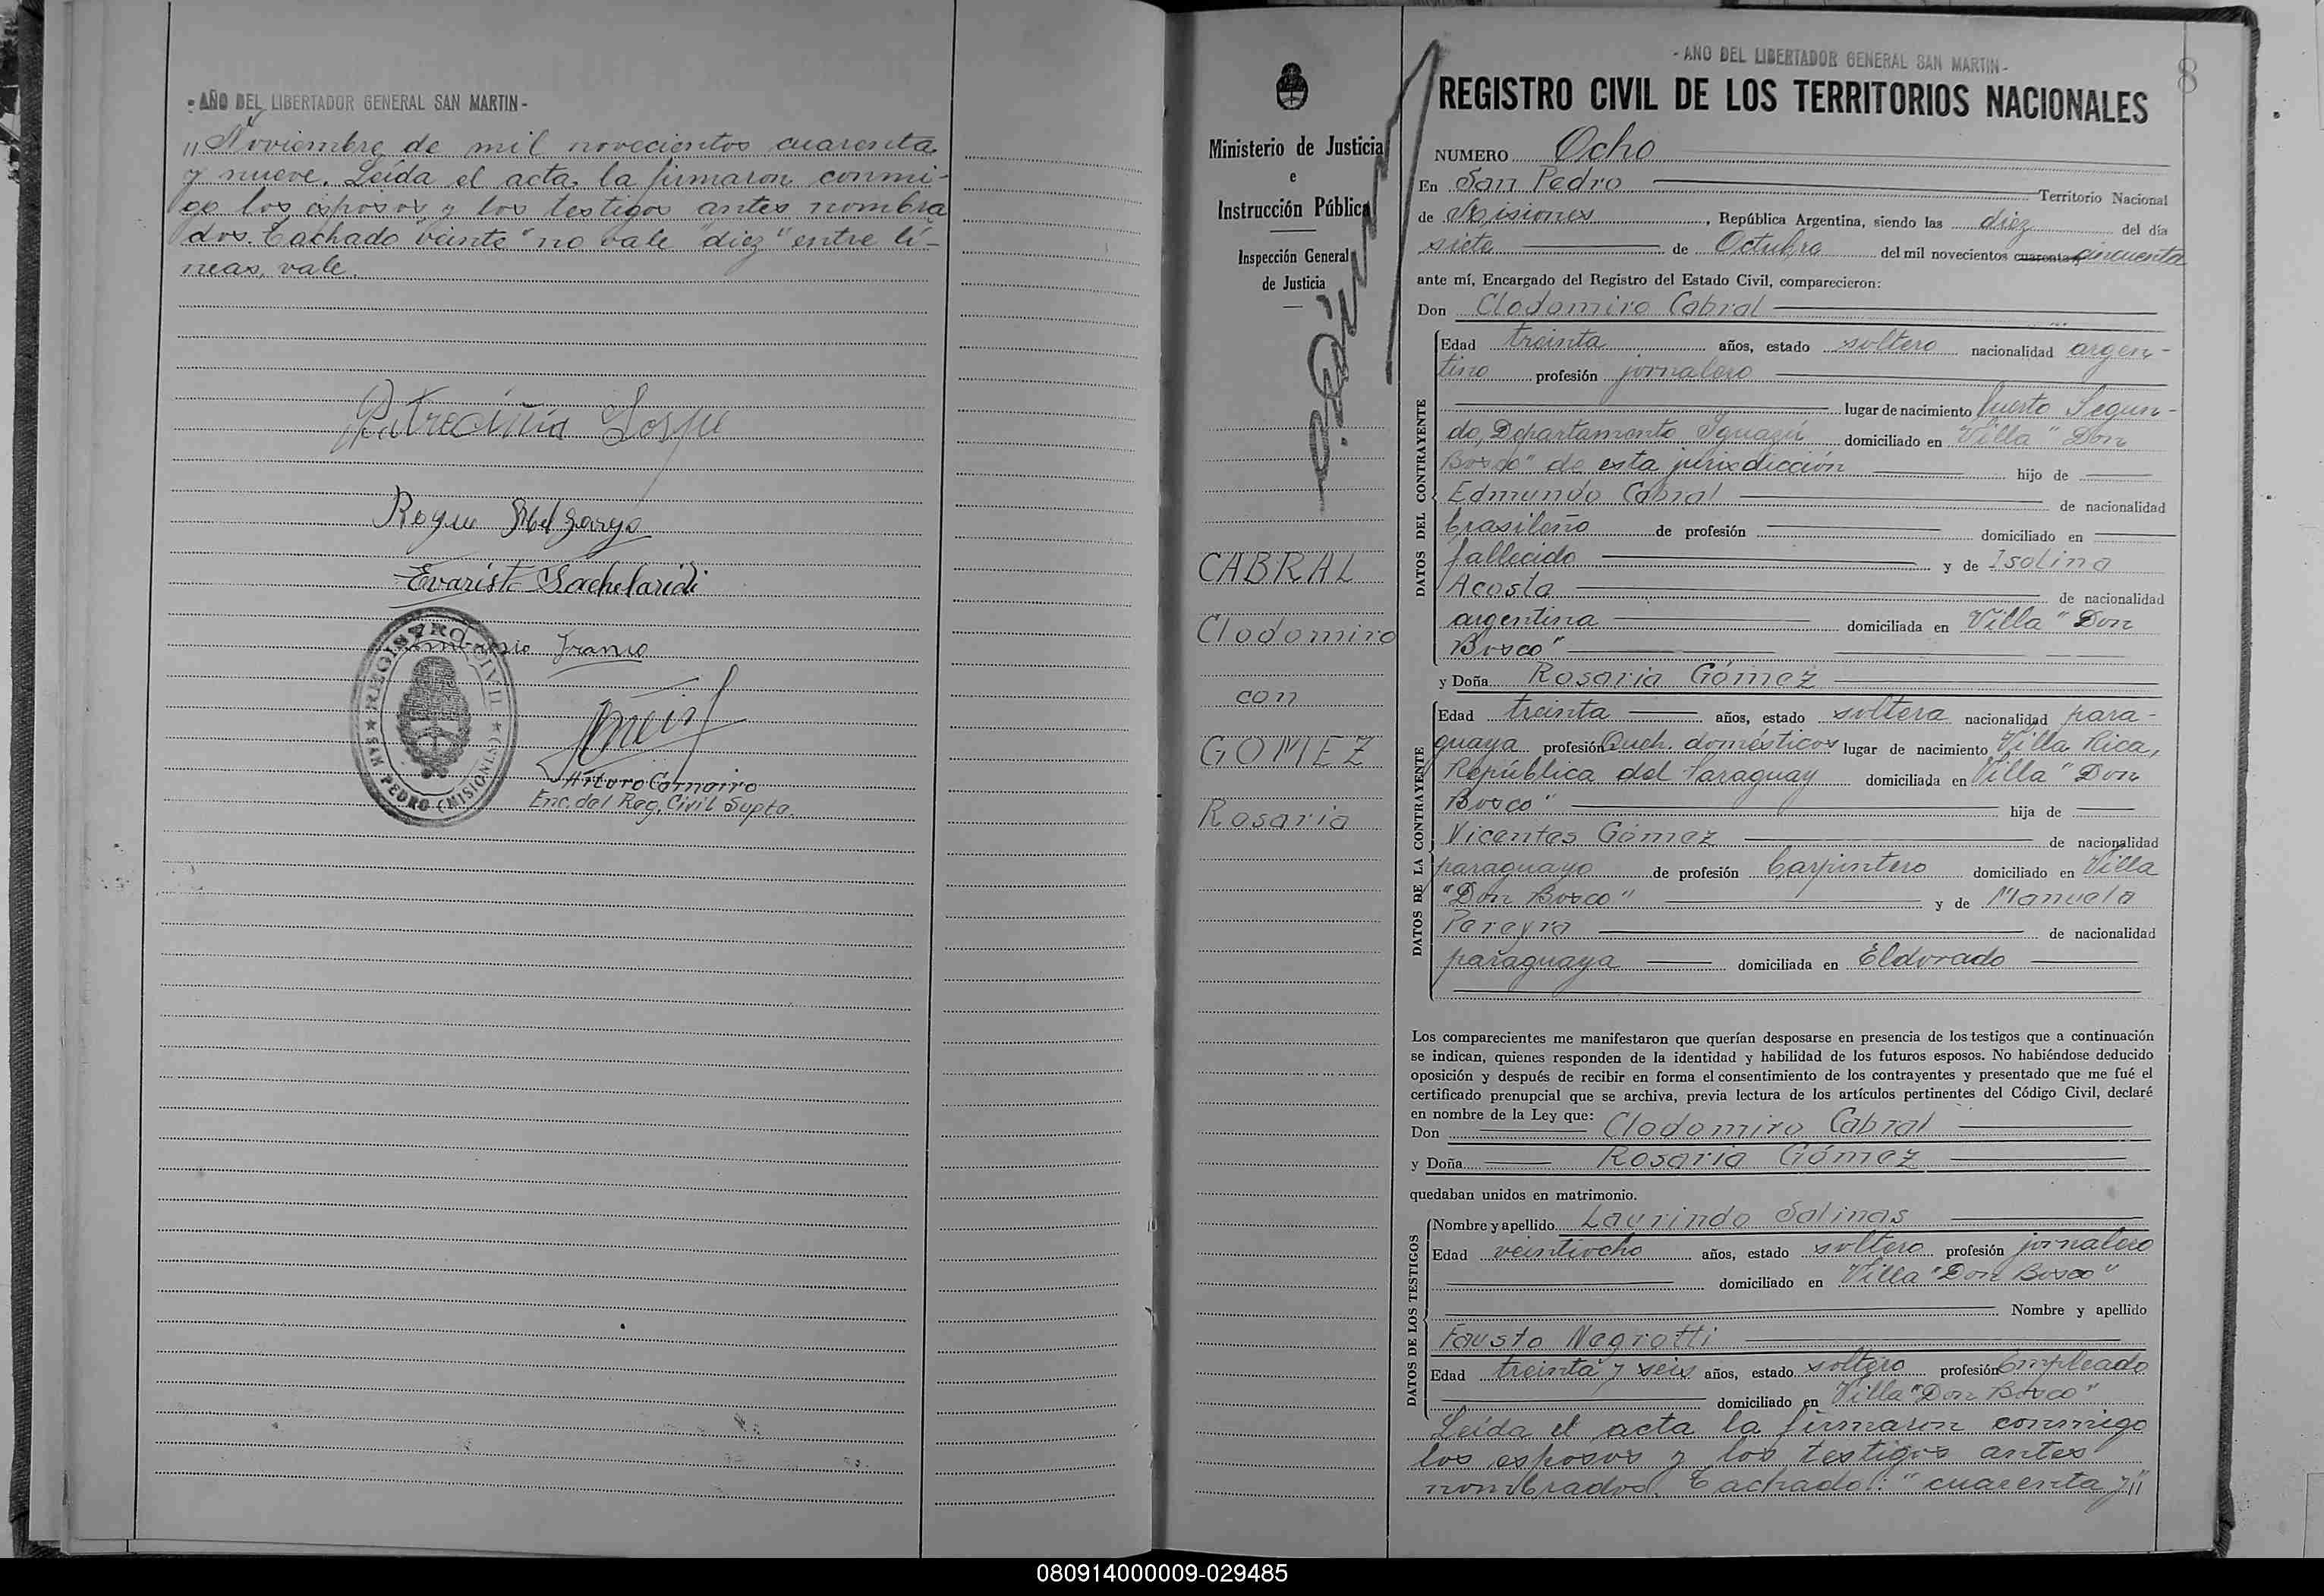 - AÑO DEL LIBERTADOR GENERAL SAN MARTIN -
" Noviembre de mil novecientos cuarenta
y nueve. Leída el acta, la firmaron conmi-
go los esposos y los testigos antes nombra
dos. Tachado "veinte" no vale "diez" entre lí-
neas, vale.
Evaristo Sachelaridi
Franco
REGISTRO CIVIL
SAN PEDRO (MISIONES)
Arturo Cornairo
Enc. del Reg. Civil Supte.
Ministerio de Justicia
e
Instrucción Pública
Inspección General
de Justicia
CABRAL
Clodomiro
con
GOMEZ
Rosaria
- AÑO DEL LIBERTADOR GENERAL SAN MARTIN -
8
REGISTRO CIVIL DE LOS TERRITORIOS NACIONALES
NUMERO Ocho
En San Pedro Territorio Nacional
de Misiones, República Argentina, siendo las diez del día
siete de Octubre del mil novecientos cuarenta y cincuenta
ante mí, Encargado del Registro del Estado Civil, comparecieron:
Don Clodomiro Cabral
DATOS DEL CONTRAYENTE
Edad treinta años, estado soltero nacionalidad argen-
tino profesión jornalero
lugar de nacimiento Puerto Segun-
do, Departamento Iguazú domiciliado en Villa "Don
Bosco" de esta jurisdicción hijo de
Edmundo Cabral de nacionalidad
brasileño de profesión domiciliado en
fallecido y de Isolina
Acosta de nacionalidad
argentina domiciliada en Villa "Don
Bosco"
y Doña Rosaria Gómez
DATOS DE LA CONTRAYENTE
Edad treinta años, estado soltera nacionalidad para-
guaya profesión Queh. domésticos lugar de nacimiento Villa Rica,
República del Paraguay domiciliada en Villa "Don
Bosco" hija de
Vicentes Gómez de nacionalidad
paraguayo de profesión Carpintero domiciliado en Villa
"Don Bosco" y de Manuela
Pereyra de nacionalidad
paraguaya domiciliada en Eldorado
Los comparecientes me manifestaron que querían desposarse en presencia de los testigos que a continuación
se indican, quienes responden de la identidad y habilidad de los futuros esposos. No habiéndose deducido
oposición y después de recibir en forma el consentimiento de los contrayentes y presentado que me fué el
certificado prenupcial que se archiva, previa lectura de los artículos pertinentes del Código Civil, declaré
en nombre de la Ley que:
Don Clodomiro Cabral
y Doña Rosaria Gómez
quedaban unidos en matrimonio.
DATOS DE LOS TESTIGOS
Nombre y apellido Laurindo Salinas
Edad veintiocho años, estado soltero profesión jornalero
domiciliado en Villa "Don Bosco"
Nombre y apellido
Fausto Negrotti
Edad treinta y seis años, estado soltero profesión Empleado
domiciliado en Villa "Don Bosco"
Leída el acta la firmaron conmigo
los esposos y los testigos antes
nombrados. Tachado: "cuarenta y"
080914000009-029485